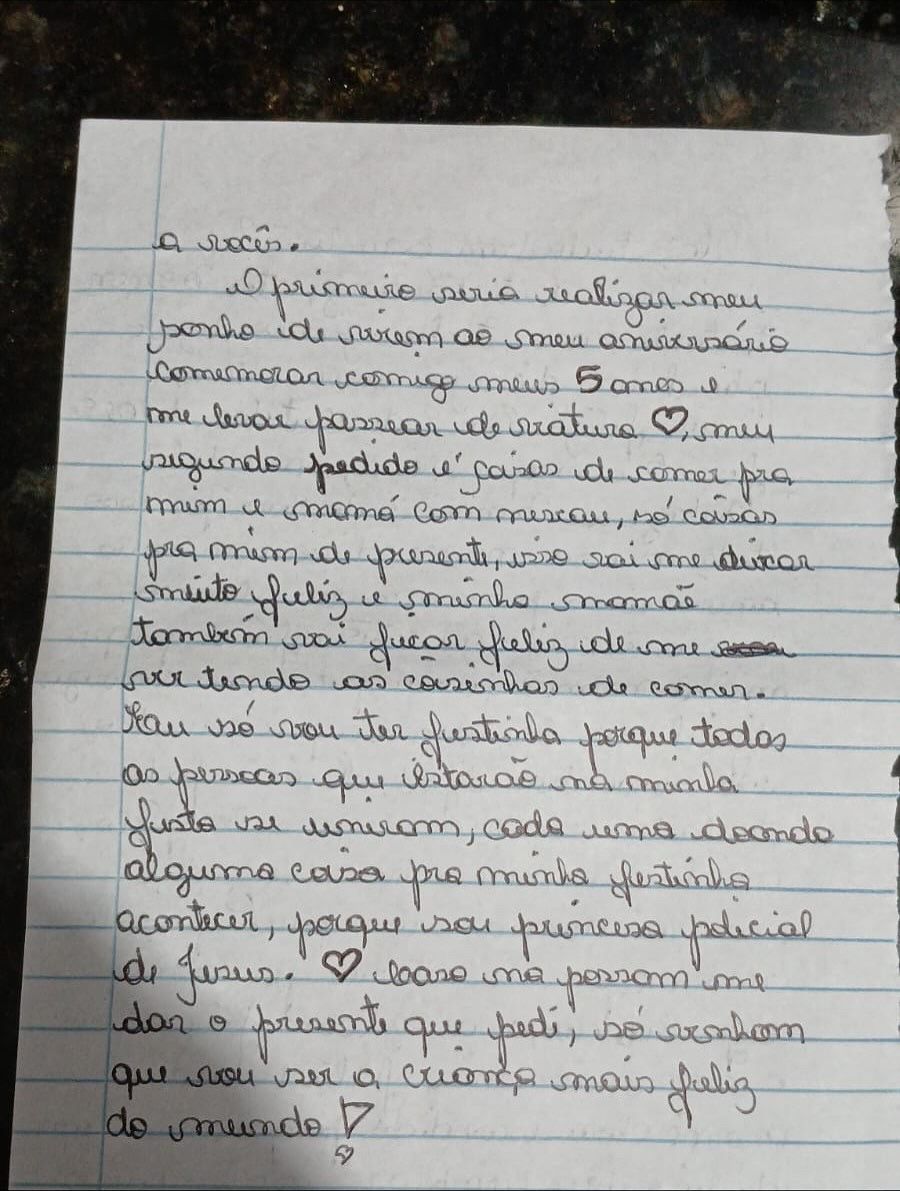 a vocês.
O primeiro seria realizar meu
sonho de virem ao meu aniversário
comemorar comigo meus 5 anos e
me levar passear de viatura ♡, meu
segundo pedido é coisas de comer pra
mim e mamá com nescau, só coisas
pra mim de presente, isso vai me deixar
muito feliz e minha mamãe
também vai ficar feliz de me
ver tendo as coisinhas de comer.
Eu só vou ter festinha porque todas
as pessoas que estarão na minha
festa se uniram, cada uma doando
alguma coisa pra minha festinha
acontecer, porque sou princesa policial
de Jesus. ♡ Caso na possam me
dar o presente que pedi, só venham
que vou ser a criança mais feliz
do mundo!